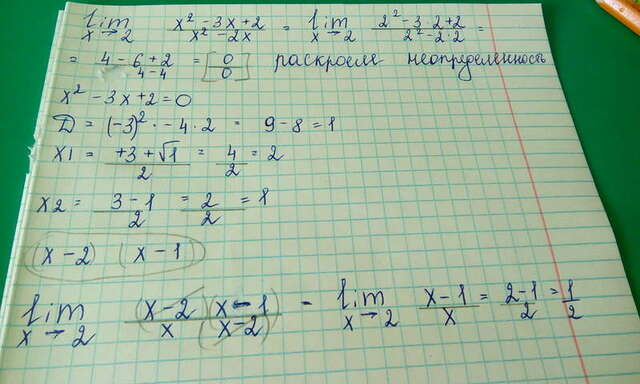 lim x→2 (x² - 3x + 2)/(x² - 2x) = lim x→2 (2² - 3·2 + 2)/(2² - 2·2) =
= (4 - 6 + 2)/(4 - 4) = [0/0] раскроем неопределенность
x² - 3x + 2 = 0
D = (-3)² · - 4·2 = 9 - 8 = 1
x1 = (+3 + √1)/2 = 4/2 = 2
x2 = (3 - 1)/2 = 2/2 = 1
(x - 2) (x - 1)
lim x→2 (x - 2)(x - 1)/x(x - 2) = lim x→2 (x - 1)/x = (2 - 1)/2 = 1/2